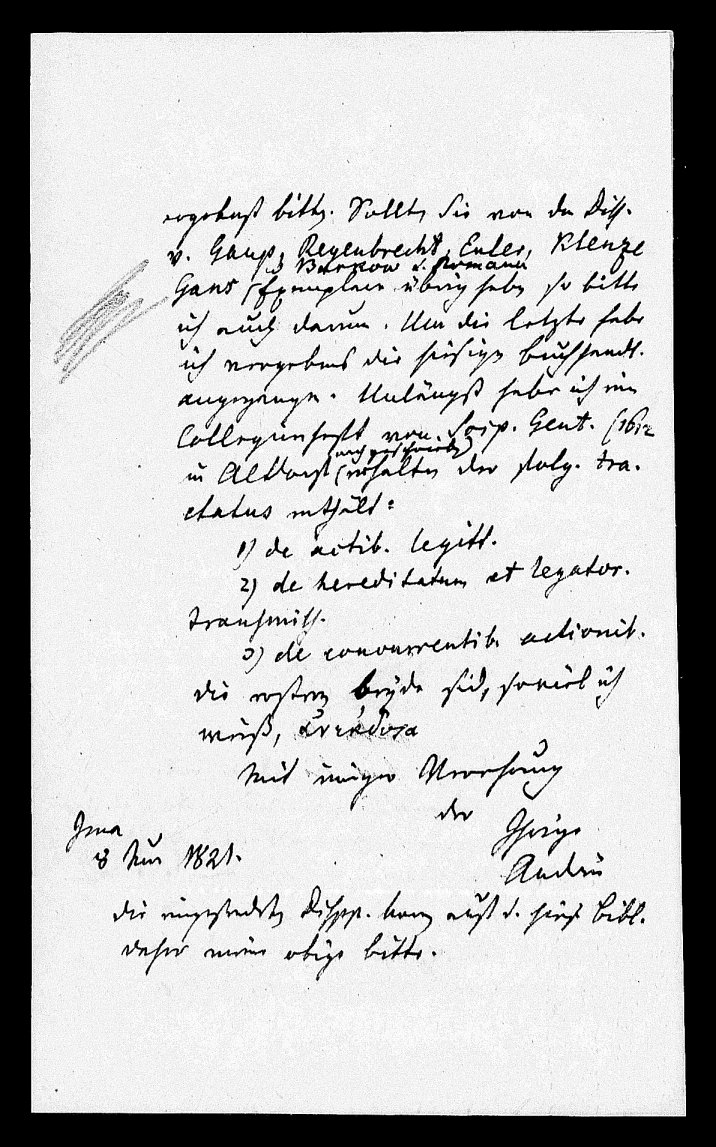 ergebenst bitte. Sollten Sie von den Diss.
v. Gaup, Regenbrecht, Euler, Klenze
Barkow u. Romani
Gans Exemplare übrig haben so bitte
ich auch darum. Um die letzte habe
ich vergebens die hiesigen Buchhandl.
angegangen. Unlängst habe ich ein
Collegienheft von Scip. Gent. (1612
nachgeschrieben)
in Altdorf erhalten der folg. tra-
ctatus enthält:
1) de actib. legitt.
2) de hereditatum et legator.
transmiss.
3) de concurrentib. actionib.
die ersten beyde sind, soviel ich
weiß, ἀνέκδοτα
Mit inniger Verehrung
der
Ihrige
Jena
8 1821.
die eingesandten Dissp. kom auf d. hies Bibl.
daher meine obige bitte.